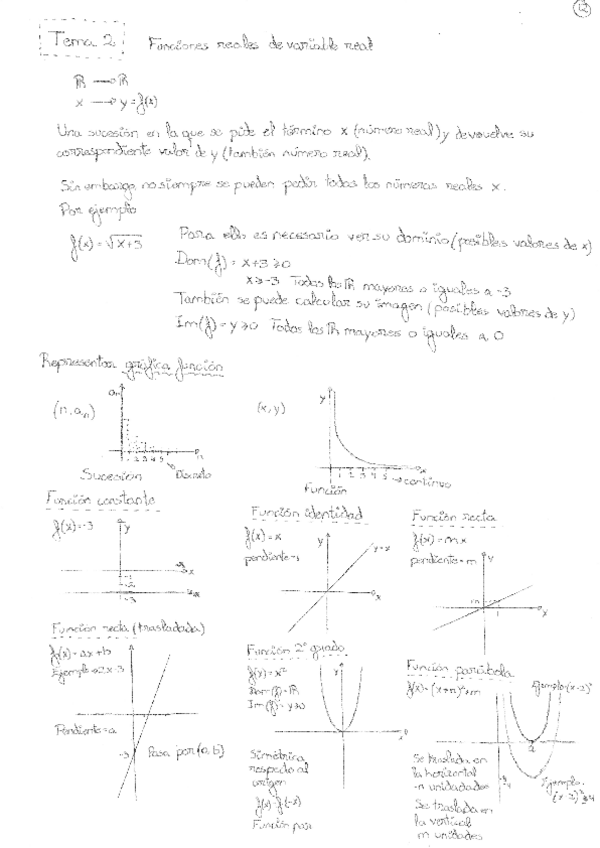 12
Tema 2 Funciones reales de variable real
R → R
x → y = f(x)
Una sucesión en la que se pide el término x (número real) y devuelve su
correspondiente valor de y (también número real).
Sin embargo, no siempre se pueden pedir todos los números reales x.
Por ejemplo
f(x) = √x+3
Para ello es necesario ver su dominio (posibles valores de x)
Dom(f) = x+3 ≥ 0
x ≥ -3 Todos los R mayores o iguales a -3
También se puede calcular su imagen (posibles valores de y)
Im(f) = y ≥ 0 Todos los R mayores o iguales a 0
Representar gráfica función
(n, aₙ)
aₙ
1 2 3 4 5
n
Sucesión
Discreto
(x, y)
y
1 2 3 4 5
x
→ continuo
Función
Función constante
f(x) = -3
y
x
-1
-2
-3
Función identidad
f(x) = x
pendiente = 1
y
y = x
x
Función recta
f(x) = mx
pendiente = m
y
m
1
x
Función recta (trasladada)
f(x) = ax + b
Ejemplo → 2x - 3
Pendiente = a
-3
Pasa por (0, b)
Función 2º grado
f(x) = x²
Dom(f) = R
Im(f) = y ≥ 0
y
x
Simétrica
respecto al
origen
f(x) = f(-x)
Función par
Función parábola
f(x) = (x+n)² + m
Ejemplo (x-2)²
2
Se traslada en
la horizontal
-n unidades
Se traslada en
la vertical
m unidades
Ejemplo